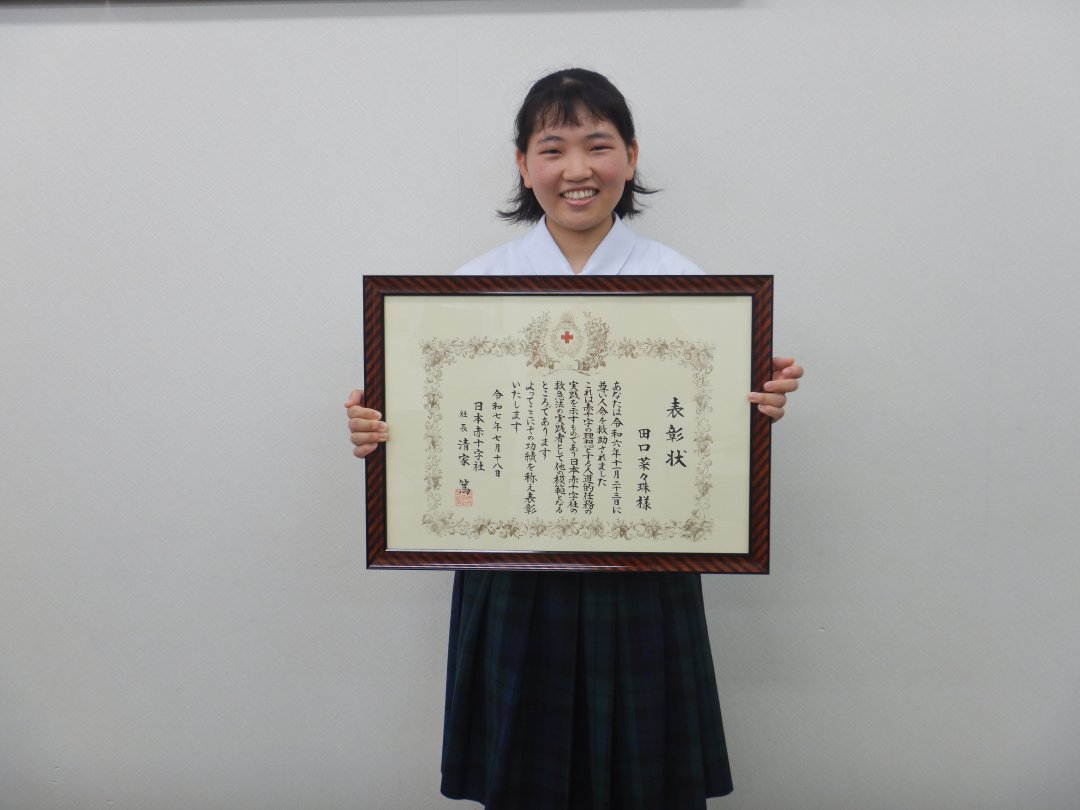 表彰状
田口菜々珠様
あなたは令和六年十一月二十三日に
尊い人命を救助されました
これは赤十字の理想とする人道的任務の
実践を示すものであり日本赤十字社の
救急法の実践者として他の模範となる
ところであります
よってここにその功績を称え表彰
いたします
令和七年七月十八日
日本赤十字社
社長 清家 篤